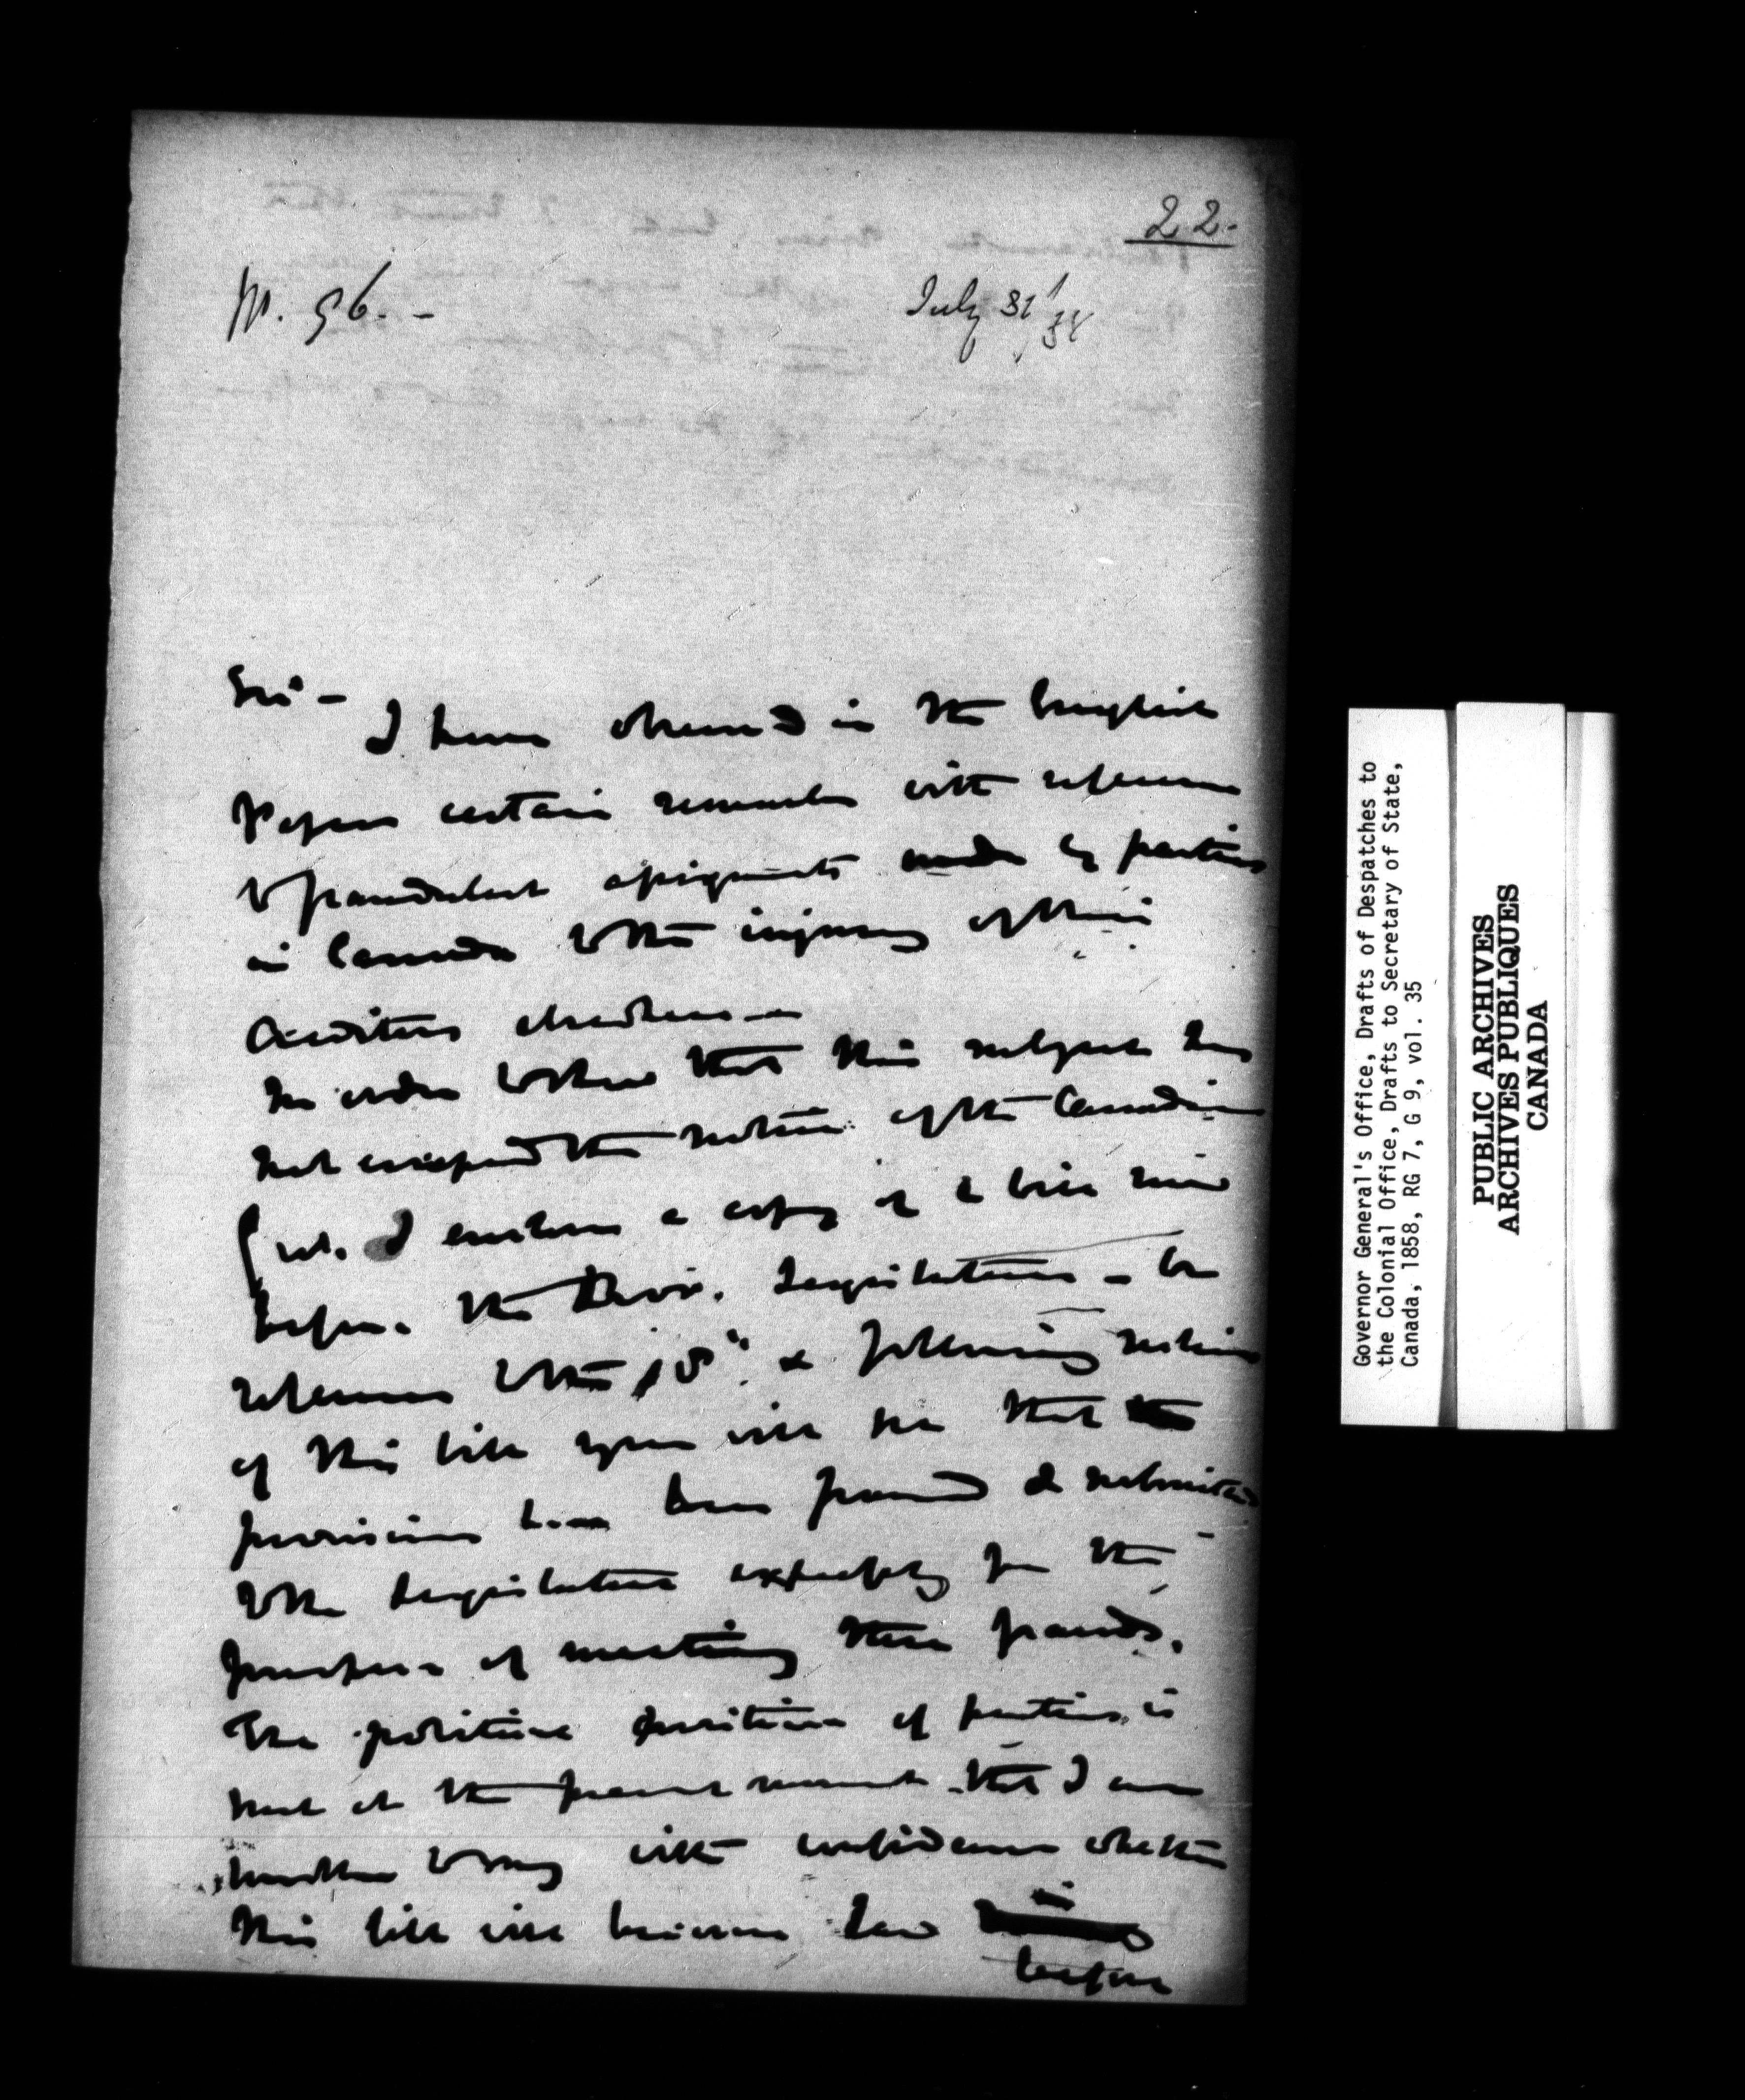 22.
No. 96. -
July 31/58
Sir - I have observed in the English
Papers certain remarks with reference
to fraudulent assignments made by parties
in Canada to the injury of their
Creditors elsewhere -
In order to show that this subject has
not escaped the notice of the Canadian
I enclose a copy of a bill now
before the Prov. Legislature - by
reference to the 18th & following sections
of this bill you will see that
provisions have been framed & submitted
to the Legislature expressly for the
purpose of meeting these frauds.
The political position of parties is
not at the present moment that I can
with confidence whether
this bill will become law
before
Governor General's Office, Drafts of Despatches to
the Colonial Office, Drafts to Secretary of State,
Canada, 1858, RG 7, G 9, vol. 35
PUBLIC ARCHIVES
ARCHIVES PUBLIQUES
CANADA